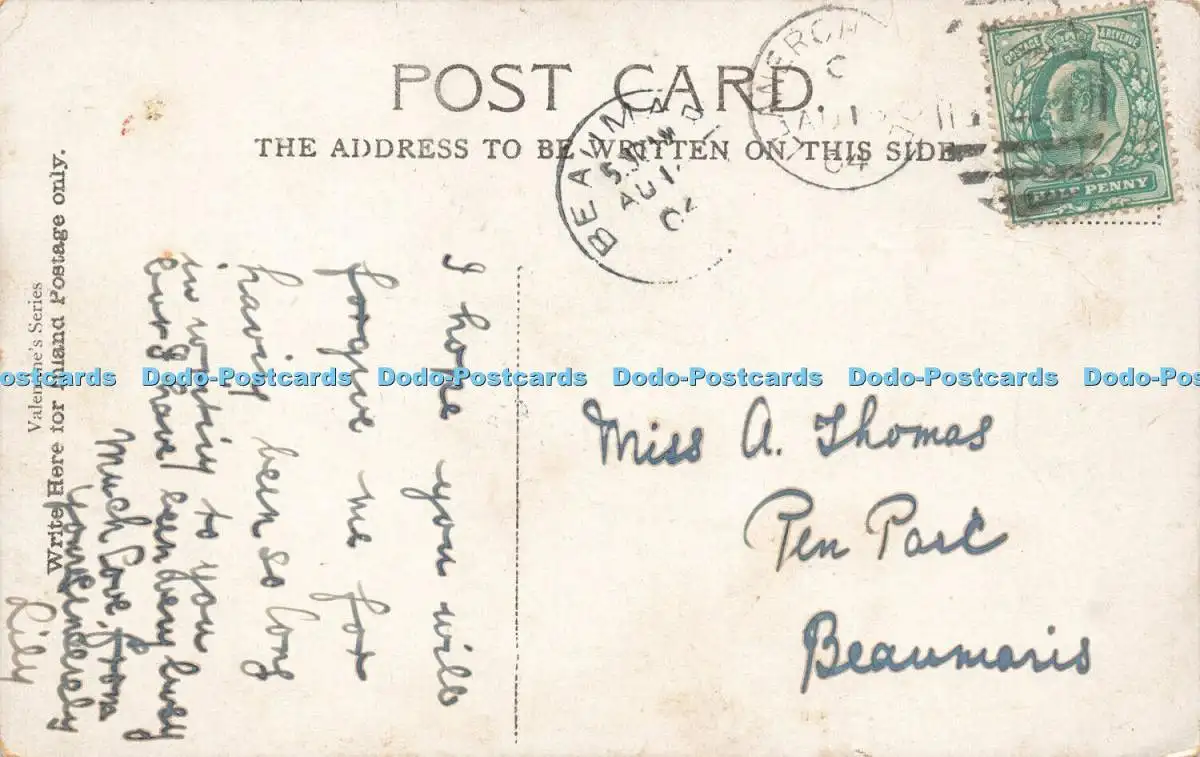 POST CARD.
THE ADDRESS TO BE WRITTEN ON THIS SIDE.
POSTAGE & REVENUE
HALF PENNY
BEAUMA
AU 1
04
Valentine's Series
Write Here for Inland Postage only.
I hope you will
forgive me for
having been so long
in writing to you
but I have been very busy
Much Love from
Yours Sincerely
Lily
Miss A. Thomas
Pen Parc
Beaumaris
Dodo-Postcards Dodo-Postcards Dodo-Postcards Dodo-Postcards Dodo-Postcards